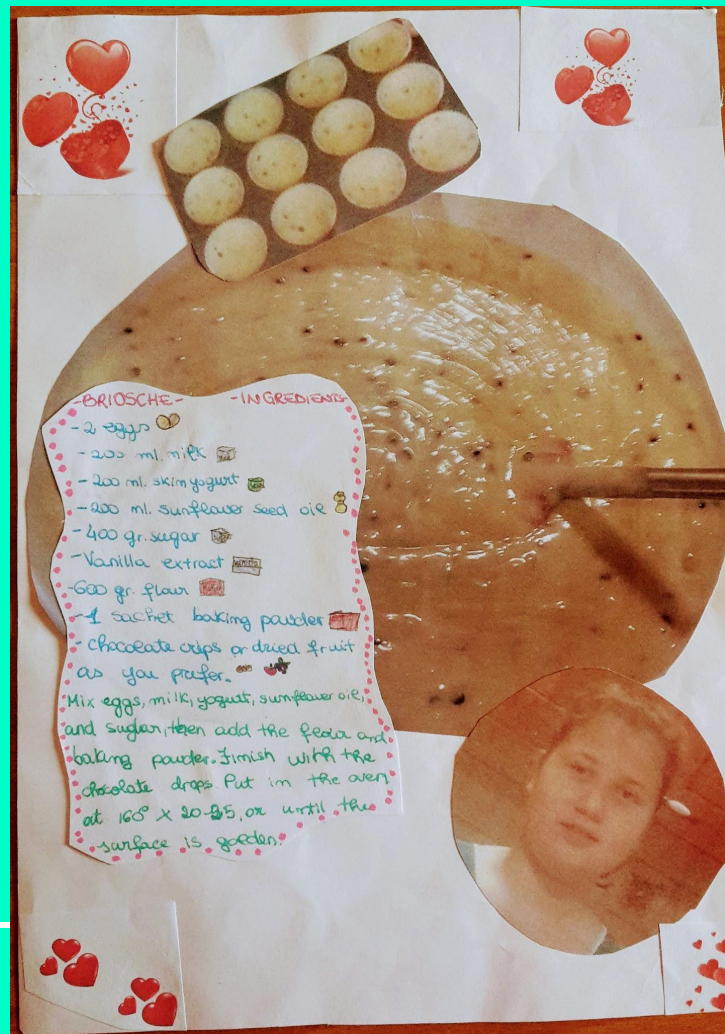 -BRIOSCHE- -INGREDIENTS
-2 eggs
-200 ml. milk
-200 ml. skim yogurt
-200 ml. sunflower seed oil
-400 gr. sugar
-Vanilla extract
-600 gr. flour
-1 sachet baking powder
-chocolate chips or dried fruit
as you prefer.
Mix eggs, milk, yogurt, sunflower oil,
and sugar, then add the flour and
baking powder. Finish with the
chocolate drops. Put in the oven
at 160° X 20-25, or until the
surface is golden.